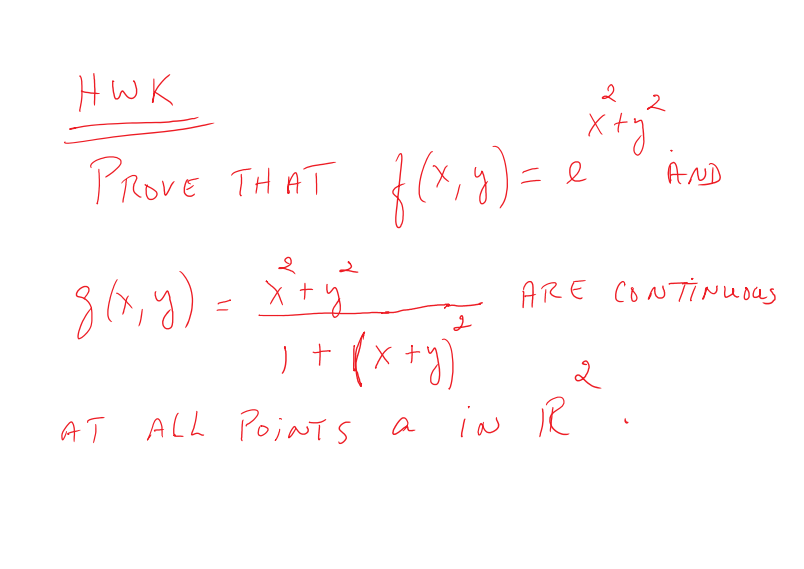 HWK
PROVE THAT f(x,y) = e^{x^2+y^2} AND
g(x,y) = \frac{x^2+y^2}{1+(x+y)^2} ARE CONTINUOUS
AT ALL POINTS a in ℝ^2.